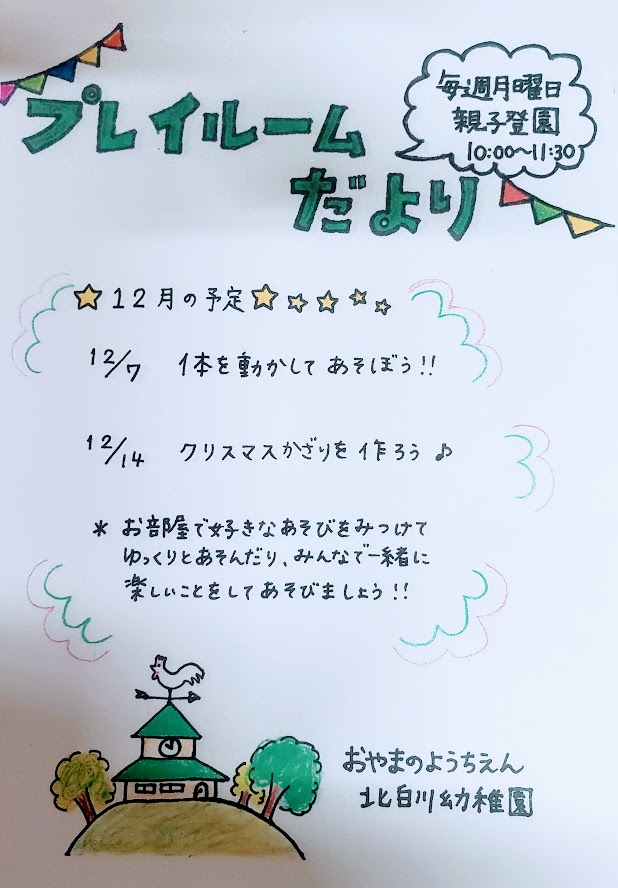 毎週月曜日
親子登園
10:00〜11:30
プレイルーム
だより
12月の予定
12/7 体を動かして あそぼう!!
12/14 クリスマスかざりを 作ろう♪
* お部屋で好きなあそびをみつけて
ゆっくりとあそんだり、みんなで一緒に
楽しいことをしてあそびましょう!!
おやまのようちえん
北白川幼稚園